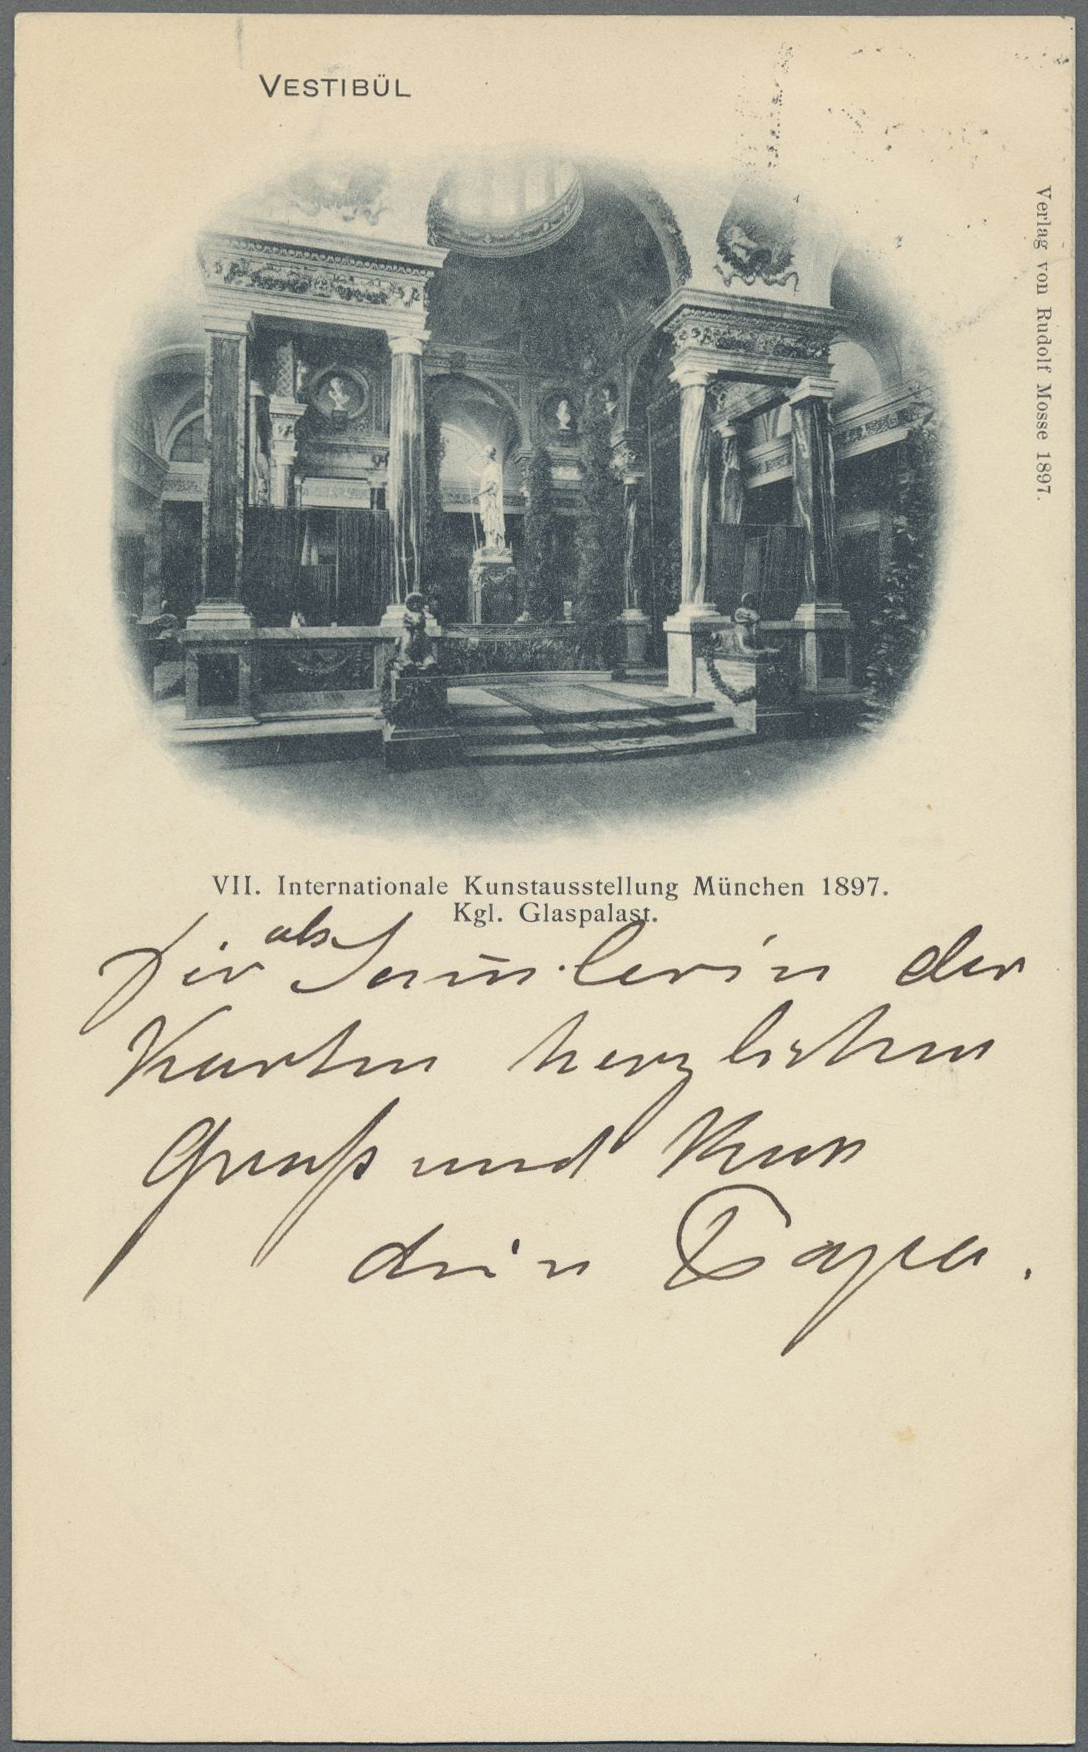 VESTIBÜL
Verlag von Rudolf Mosse 1897.
VII. Internationale Kunstausstellung München 1897.
Kgl. Glaspalast.
Dir als Sam̅lerin der
Karten herzlichen
Gruß und Kuss
dein Papa.